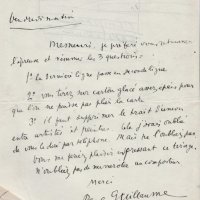 Vendredi matin
Messieurs, je préfère vous retourner
l'épreuve et résume les 3 questions :
1° la dernière ligne passe en seconde ligne
2° vous tirez sur carton glacé assez épais pour
que l'on ne puisse pas plier la carte
3° il faut supprimer le trait d'union
entre artistes et peintres. Cela j'avais oublié
de vous le dire par téléphone. Mais ne l'oubliez pas.
Vous me ferez plaisir en pressant ce tirage,
n'oubliez pas de numéroter au composteur
Merci
Guillaume